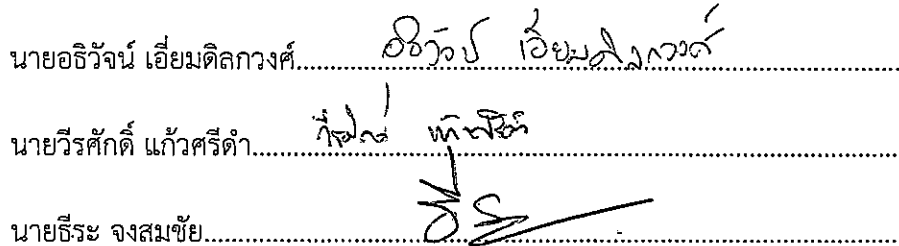 นายอธิวัจน์ เอี่ยมดิลกวงศ์.......... อธิวัจน์ เอี่ยมดิลกวงศ์
นายวีรศักดิ์ แก้วศรีดำ.......... วีรศักดิ์ แก้วศรีดำ
นายธีระ จงสมชัย.......... ธีระ